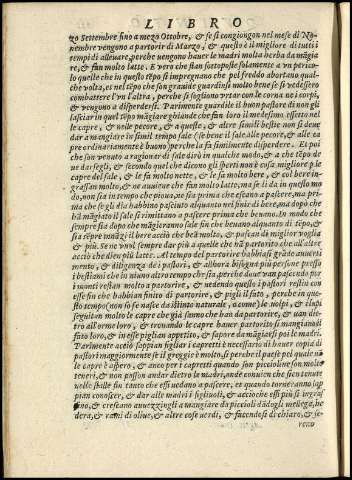 LIBRO
zo Settembre fino a mezo Ottobre, & se si congiongon nel mese di No-
uembre vengono a partorir di Marzo, & questo è il migliore di tutti i
tempi di alleuare, perche uengono hauer le madri molta herba da māgia
re, & fan molto latte. E vero che stan sottoposte solamente a vn perico-
lo quelle che in questo tēpo si impregnano che pel freddo abortano qual-
che volta, es nel tēpo che son grauide guardinsi molto bene se si vedessero
combattere l'un l'altra, perche si sogliono vrtar con le corna ne i corpi,
& vengono a disperdersi. Parimente guardile il buon pastore di non gli
lasciar in quel tēpo māgiare ghiande che fan loro il medesimo effetto nel
le capre, & nelle pecore, & a queste, & altre simili bestie non si deue
dar a mangiare in simil tempo sale (se bene il sale alle pecore, & alle ca
pre ordinariamente è buono) perche la fa similmente disperdere. Et poi
che son venuto a ragionar di sale dirò in qualche modo, & a che tēpo de
ue darsegli, & secondo quel che dicono gli sperti non è cosa migliore p le
capre del sale, & le fa molto nette, & le fa molto bere, & col bere in-
grassan molto, & ne auuiene che fan molto latte, ma se si da in questo mo
do, non sia in tempo che pioue, ne sia prima che escano a pascere, ma pri
ma che segli dia habbino pasciuto alquanto nel piu di bere, ma dapo che
hā māgiato il sale si rimittano a pascere prima che beuano. In modo che
sempre sia dopo che māgiaranno sale sin che beuano alquanto di tēpo, &
sia sēpre māgie il bere acciò che beā molto, & poscia dē miglior voglia
& più. Se ne vuol sempre dar più a quelle che hā partorito che all'altre
acciò che dien più latte. Al tempo del partorire habbiasi grāde auuerti
mento, & diligenza dei pastori, & allhora bisogna più persone presso
i bestiami che in niuno altro tempo che sia, perche doue van pascendo per
i monti restan molto a partorire, & uedendo questo i pastori restin con
esse fin che habbian finito di partorire, & pigli il fato, perche in que-
sto tempo (non sò se nasce da istinto naturale, ò come) le uolpi, & i lupi
seguitan molto le capre che già sanno che han da partorire, & uan die-
tro all'orme loro, & trouando le capre hauer partorito si mangiano il
frutto loro, & in esse piglian appetito, & sapore da māgiarsi poi le madri.
Parimente acciò sappian pigliar i capretti è necessario di hauer copia di
pastori maggiormente se il greggie è molto, si perche il paese pel quale uā
le capre è aspero, & anco per i capretti quando son piccioline son molto
teneri, & non posson andar dietro le madri, onde conuien che si en tenute
nelle stalle fin tanto che esse uedano a pascere, es quando tornerāno, sap
pian conoscere, & dar alle madri i figliuoli, & acciò che esse più s'ingras
sino, & crescano auuezzingli a mangiare da piccioli dādogli mellega, he
dera, & rami di oliue, & altre cose uerdi, & facendosi di chiaro, & se-
reno